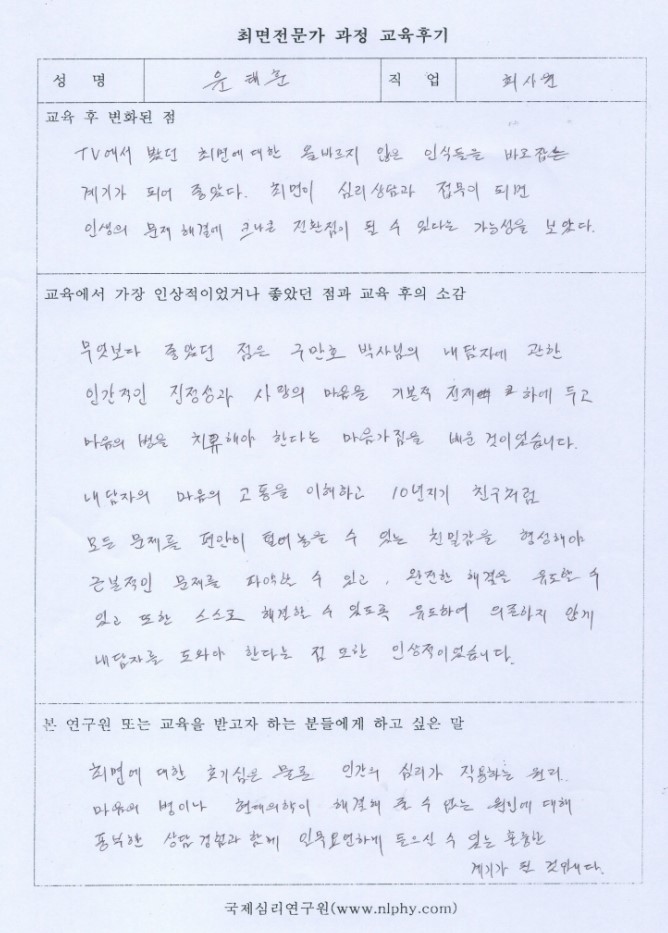 최면전문가 과정 교육후기
성 명 윤태훈 직 업 회사원
교육 후 변화된 점
TV에서 봤던 최면에 대한 올바르지 않은 인식들을 바로잡는
계기가 되어 좋았다. 최면이 심리상담과 접목이 되면
인생의 문제 해결에 크나큰 전환점이 될 수 있다는 가능성을 보았다.
교육에서 가장 인상적이었거나 좋았던 점과 교육 후의 소감
무엇보다 좋았던 점은 구만호 박사님의 내담자에 관한
인간적인 진정성과 사랑의 마음을 기본적 전제 하에 두고
마음의 병을 치료해야 한다는 마음가짐을 배운 것이었습니다.
내담자의 마음의 고통을 이해하고 10년지기 친구처럼
모든 문제를 편안히 털어놓을 수 있는 친밀감을 형성해야
근본적인 문제를 파악할 수 있고, 완전한 해결을 유도할 수
있고 또한 스스로 해결할 수 있도록 유도하여 의존하지 않게
내담자를 도와야 한다는 점 또한 인상적이었습니다.
본 연구원 또는 교육을 받고자 하는 분들에게 하고 싶은 말
최면에 대한 호기심은 물론 인간의 심리가 작용하는 원리.
마음의 병이나 현대의학이 해결해 줄 수 없는 원인에 대해
풍부한 상담 경험과 함께 일목요연하게 들으실 수 있는 훌륭한
계기가 될 것입니다.
국제심리연구원(www.nlphy.com)